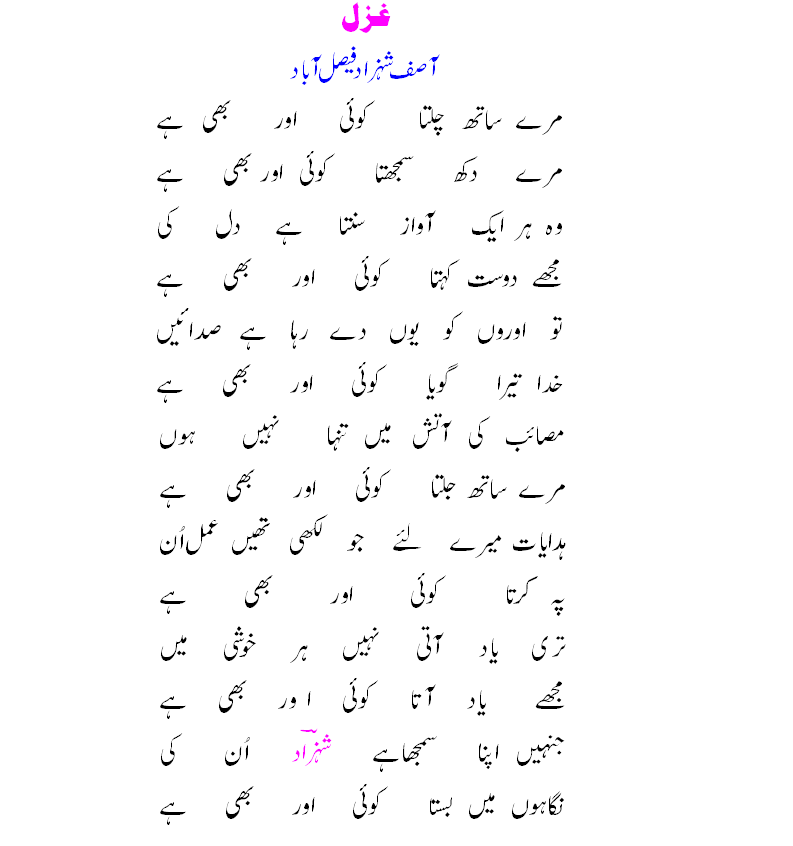 غزل
آصف شہزاد فیصل آباد
مرے ساتھ چلتا کوئی اور بھی ہے
مرے دکھ سمجھتا کوئی اور بھی ہے
وہ ہر ایک آواز سنتا ہے دل کی
مجھے دوست کہتا کوئی اور بھی ہے
تو اوروں کو یوں دے رہا ہے صدائیں
خدا تیرا گویا کوئی اور بھی ہے
مصائب کی آتش میں تنہا نہیں ہوں
مرے ساتھ جلتا کوئی اور بھی ہے
ہدایات میرے لئے جو لکھی تھیں عمل اُن
پہ کرتا کوئی اور بھی ہے
تری یاد آتی نہیں ہر خوشی میں
مجھے یاد آتا کوئی ا ور بھی ہے
جنہیں اپنا سمجھاہے شہزادؔ اُن کی
نگاہوں میں بستا کوئی اور بھی ہے